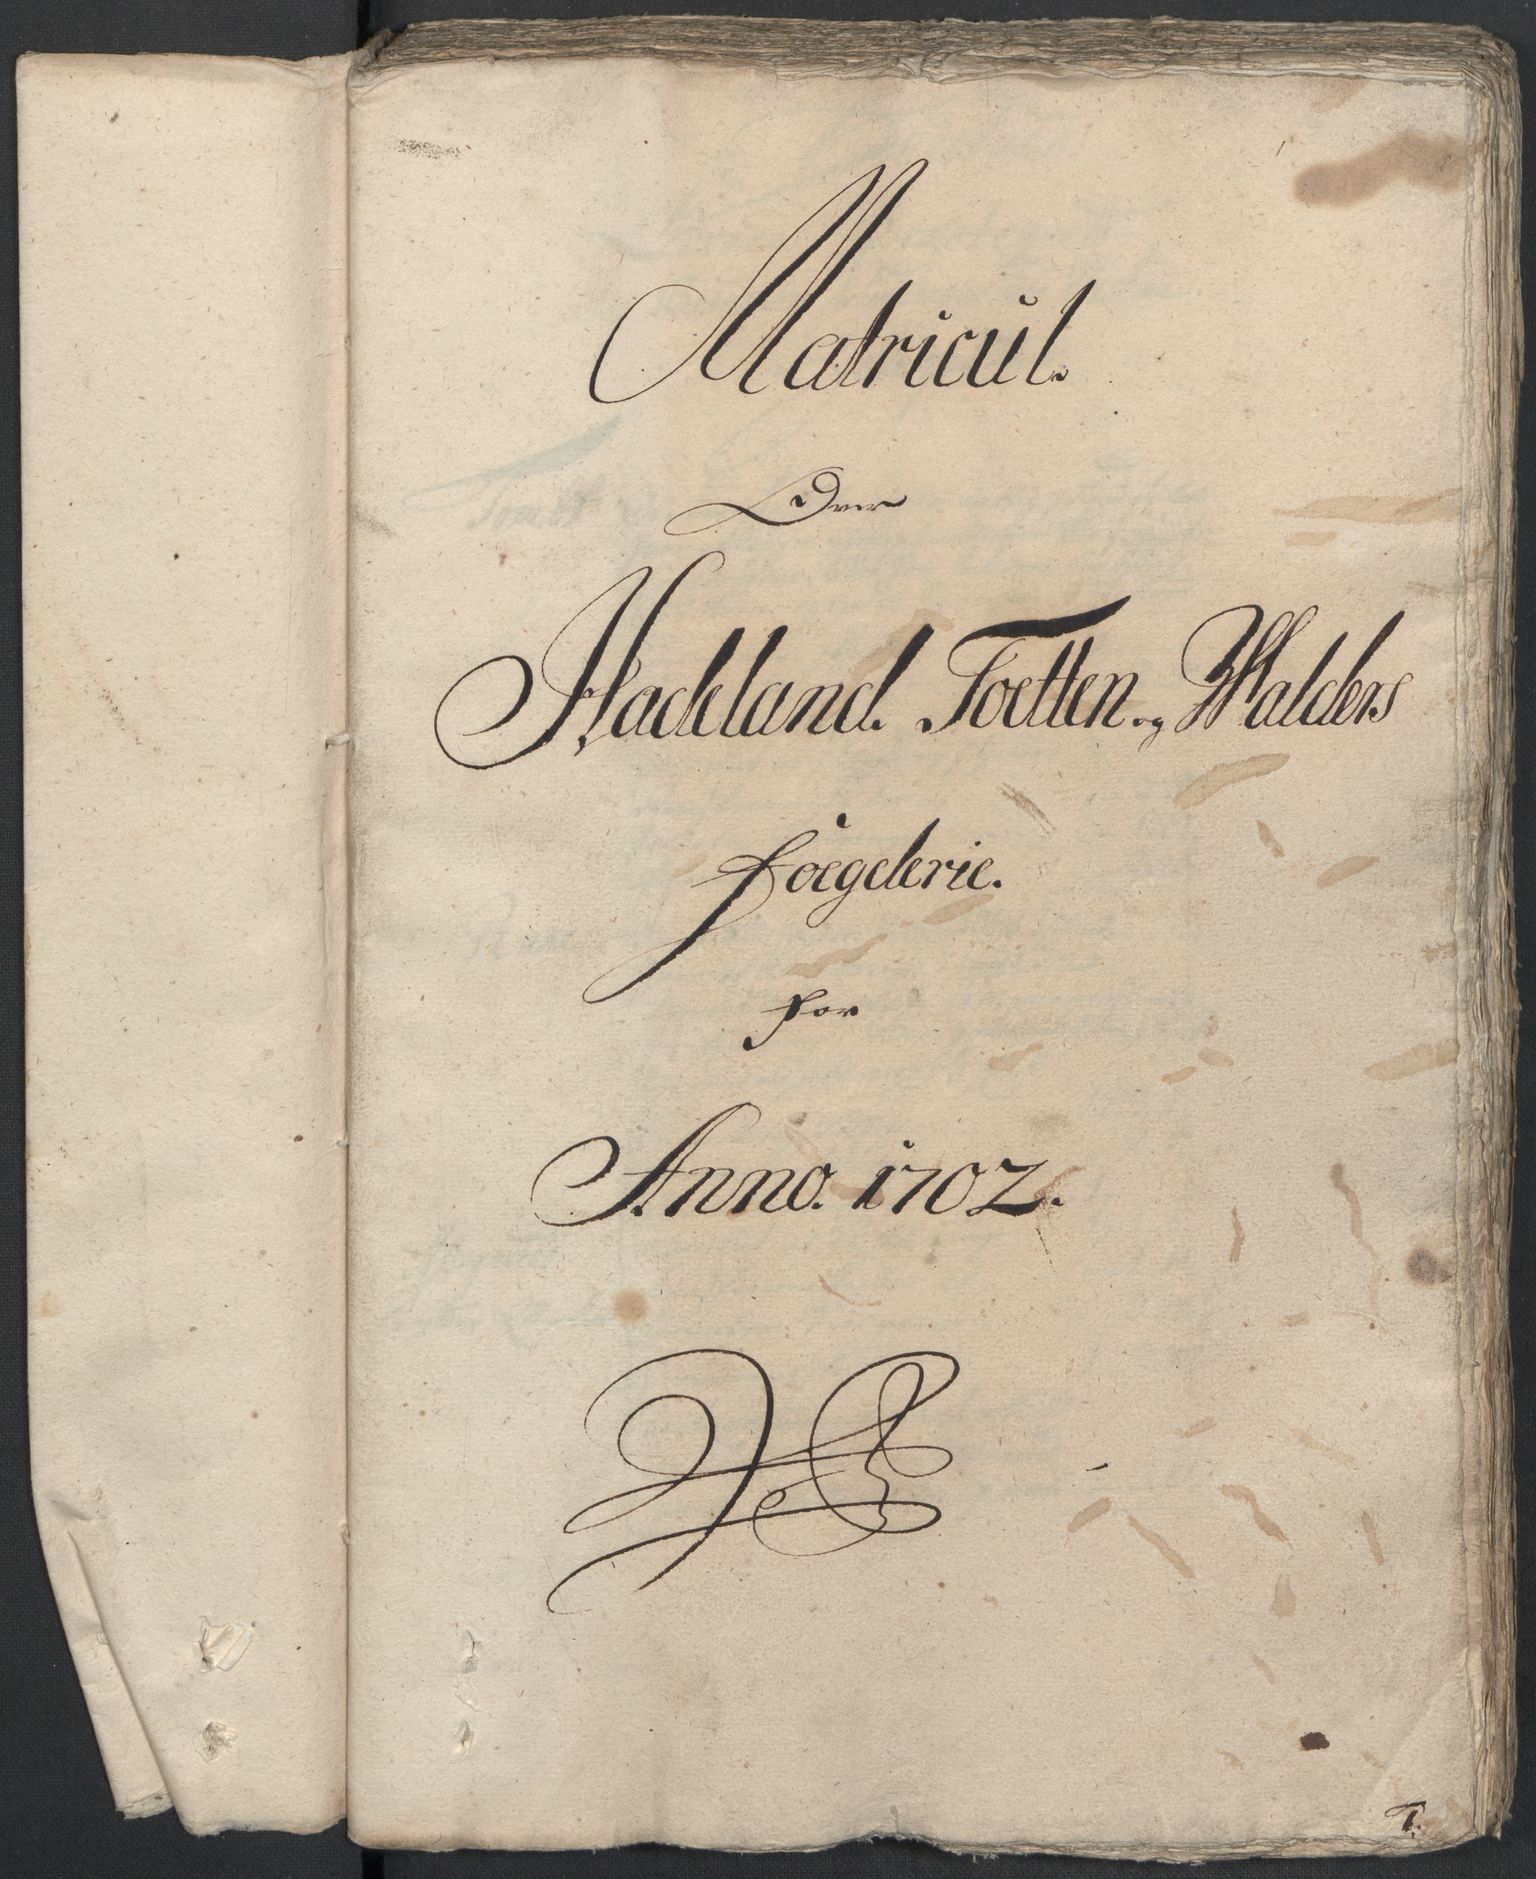 Matricul.
Over
Hadeland. Toetten. og Walders
foegderie.
for
Anno. 1702.
1.